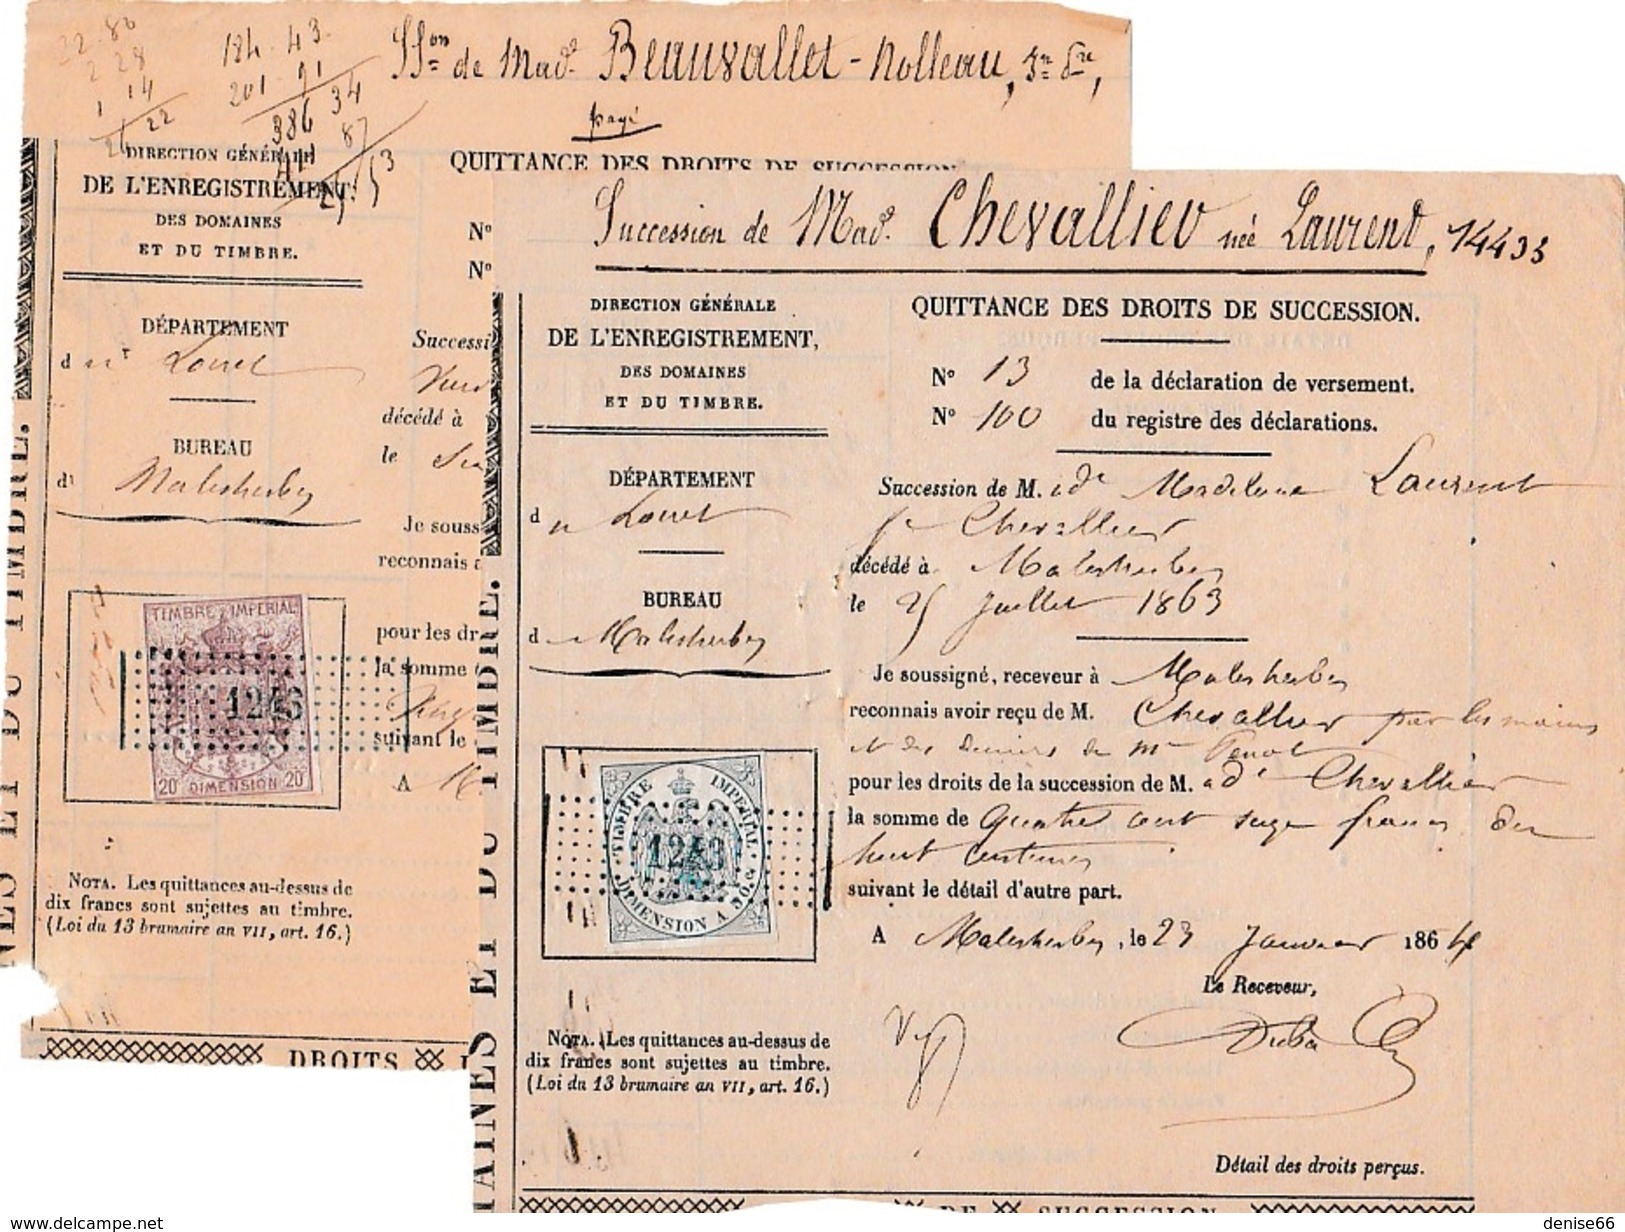 22. 80
2 28
1 14
26 22
184. 43
201. 91
386 34
87
Son de Mad.e Beauvallet - Rolleau,
payé
DIRECTION GÉNÉRALE
DE L'ENREGISTREMENT,
DES DOMAINES
ET DU TIMBRE.
DÉPARTEMENT
du Loiret
BUREAU
de Malesherbes
TIMBRE IMPÉRIAL
1246
20c DIMENSION 20c
NOTA. Les quittances au-dessus de
dix francs sont sujettes au timbre.
(Loi du 13 brumaire an VII, art. 16.)
DROITS
QUITTANCE DES DROITS DE SUCCESSION
No
No
Successi
décédé à
le
Je souss
reconnais a
pour les dr
la somme
suivant le
A M
NES ET DU TIMBRE.
Succession de Mad.e Chevallier née Laurent, 14433
DIRECTION GÉNÉRALE
DE L'ENREGISTREMENT,
DES DOMAINES
ET DU TIMBRE.
DÉPARTEMENT
du Loiret
BUREAU
de Malesherbes
TIMBRE IMPÉRIAL
1243
DIMENSION A 50 c.
NOTA. Les quittances au-dessus de
dix francs sont sujettes au timbre.
(Loi du 13 brumaire an VII, art. 16.)
MAINES ET DU TIMBRE.
QUITTANCE DES DROITS DE SUCCESSION.
No 13 de la déclaration de versement.
No 100 du registre des déclarations.
Succession de M.ade Madeleine Laurent
fe Chevallier
décédé à Malesherbes
le 25 Juillet 1863
Je soussigné, receveur à Malesherbes
reconnais avoir reçu de M. Chevallier par les mains
et des deniers de Me
pour les droits de la succession de M.ade Chevallier
la somme de Quatre cent seize francs dix
huit centimes
suivant le détail d'autre part.
A Malesherbes, le 23 Janvier 1864
Le Receveur,
Détail des droits perçus.
DE SUCCESSION
denise66
www.delcampe.net